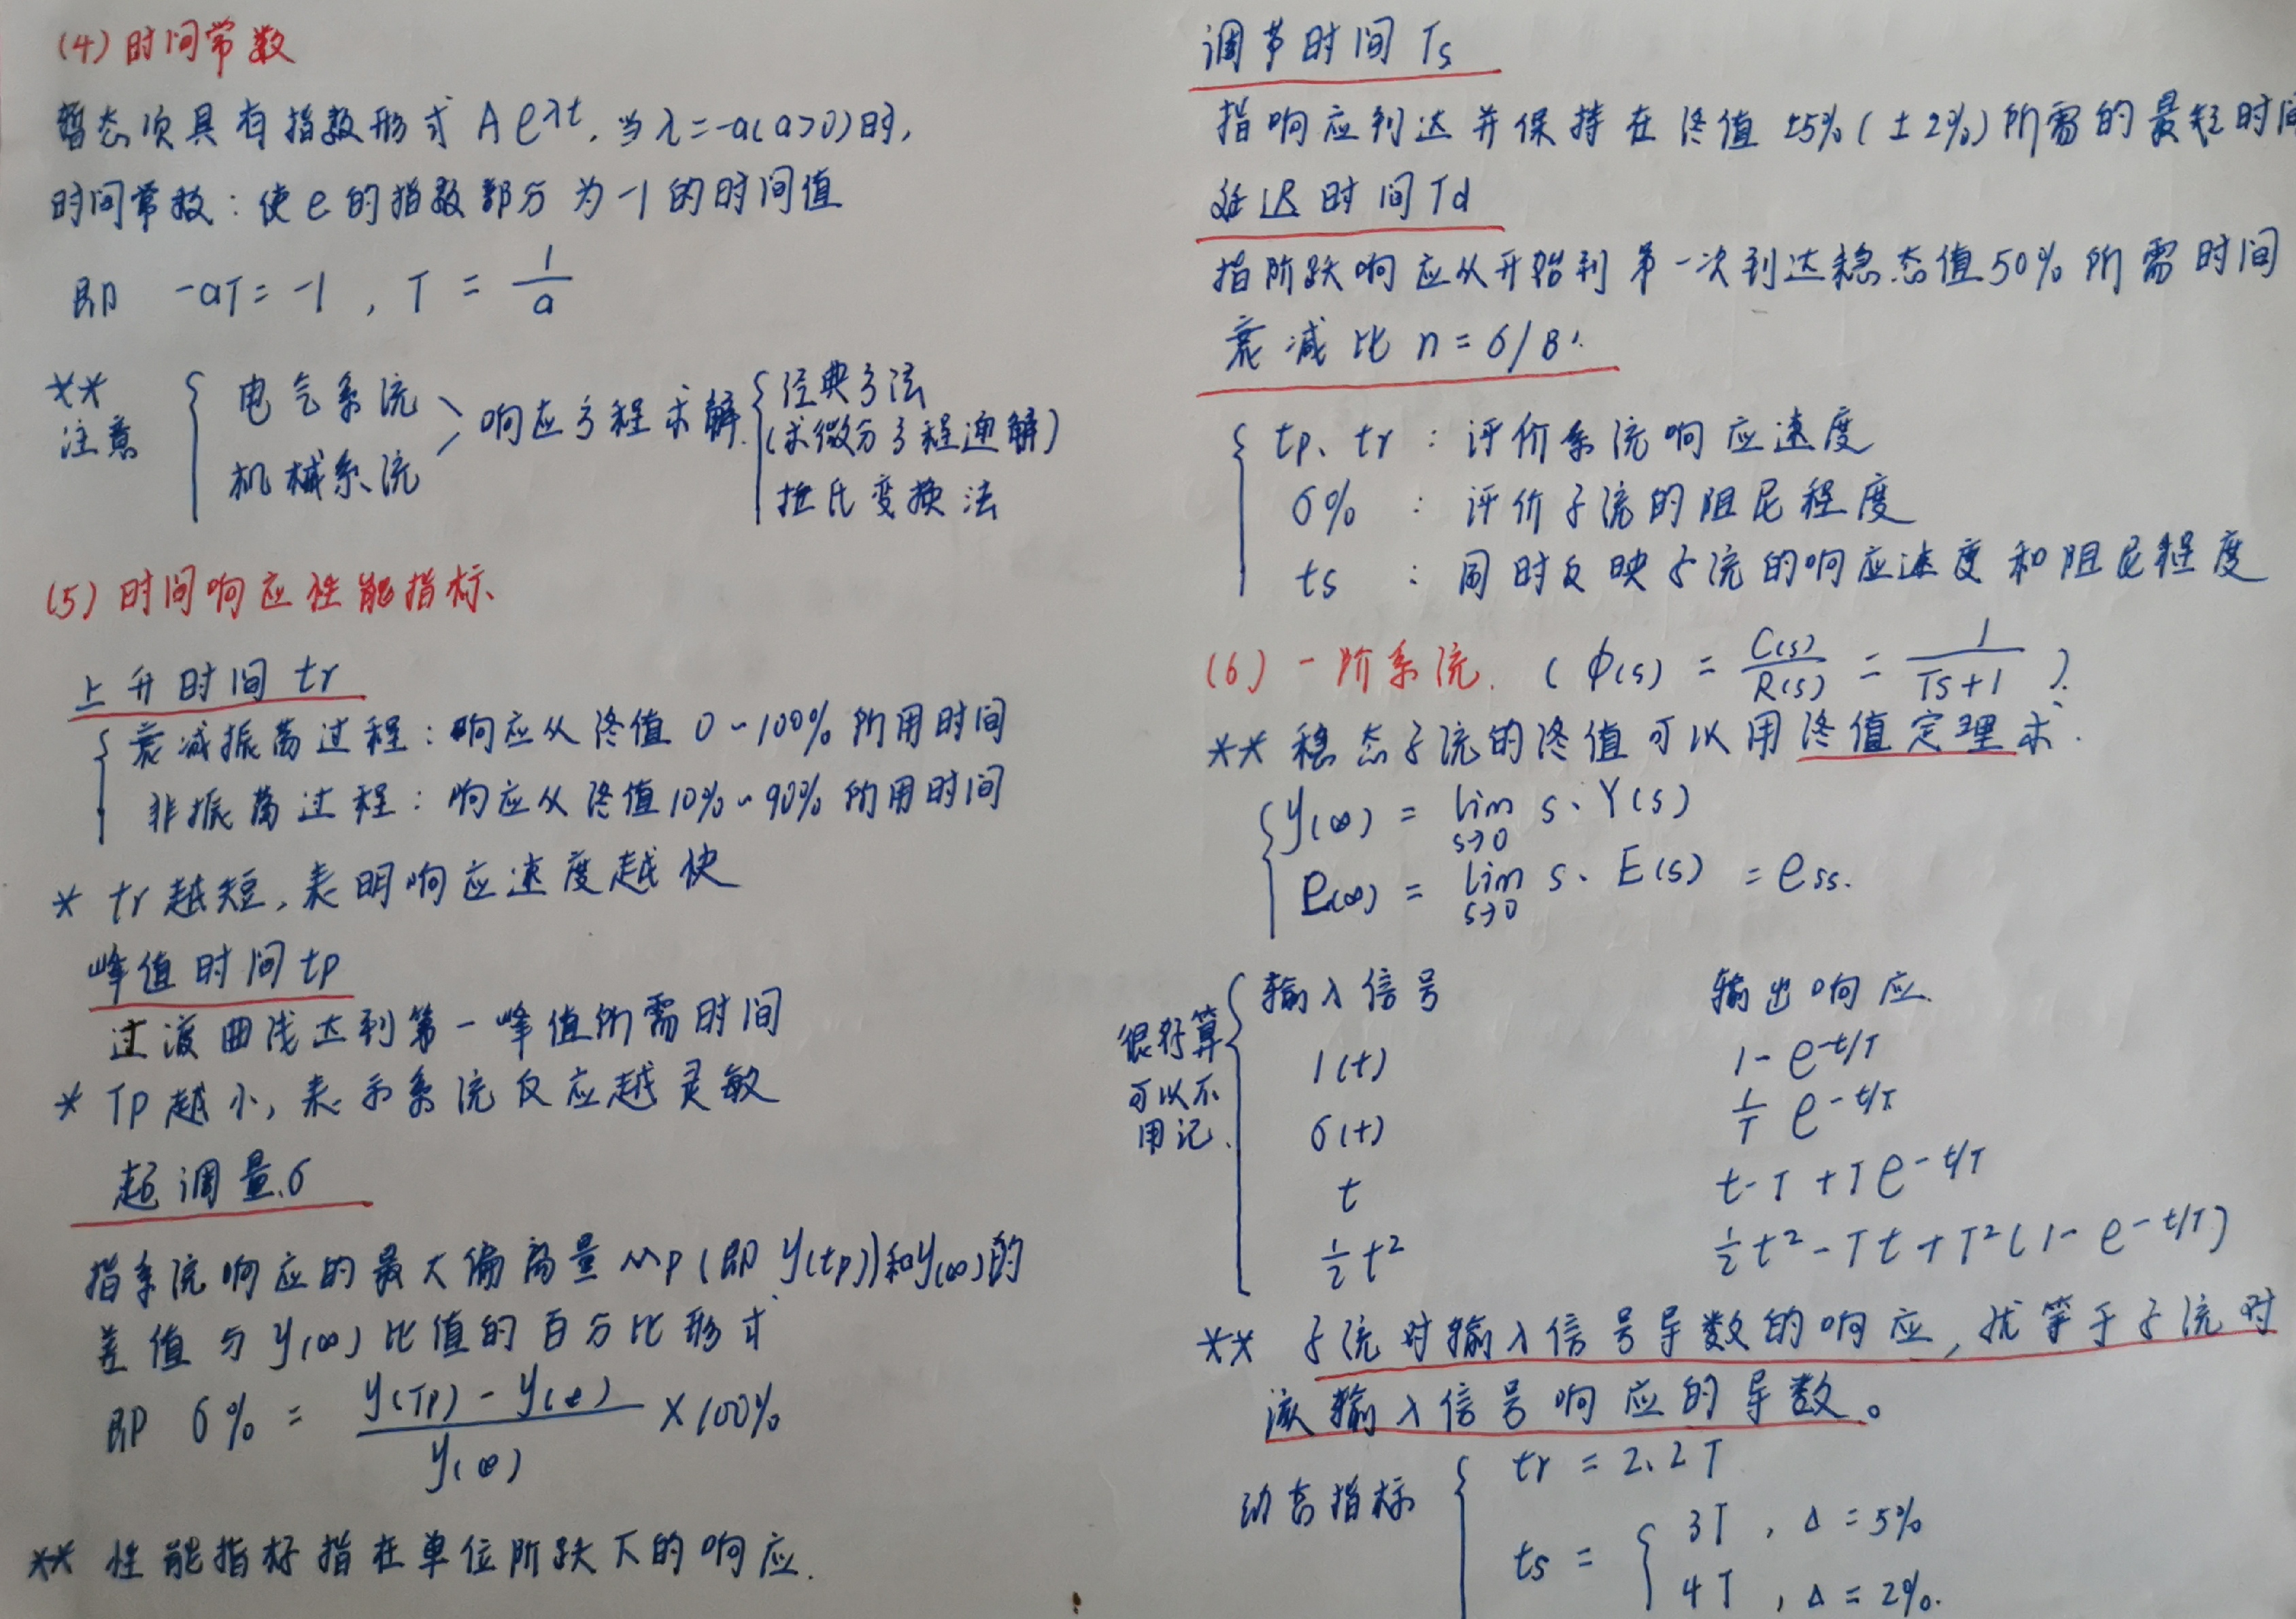 (4) 时间常数
暂态项具有指数形式 Ae^λt, 当λ=-a(a>0)时,
时间常数: 使e的指数部分为-1的时间值
即 -aT=-1, T = 1/a
** 注意 { 电气系统 机械系统 > 响应方程求解 { 经典方法 (求微分方程通解) 拉氏变换法
(5) 时间响应性能指标
上升时间 tr
{ 衰减振荡过程: 响应从终值 0~100% 所用时间
非振荡过程: 响应从终值10%~90% 所用时间
* tr越短, 表明响应速度越快
峰值时间tp
过渡曲线达到第一峰值所需时间
* Tp越小, 表示系统反应越灵敏
超调量σ
指系统响应的最大偏离量Mp(即 y(tp))和y(∞)的
差值与y(∞)比值的百分比形式
即 σ% = (y(Tp) - y(∞)) / y(∞) ×100%
** 性能指标指在单位阶跃下的响应.
调节时间 Ts
指响应到达并保持在终值 ±5%(±2%)所需的最短时间
延迟时间Td
指阶跃响应从开始到第一次到达稳态值50%所需时间
衰减比 n=σ/B'
{ tp、tr : 评价系统响应速度
σ% : 评价系统的阻尼程度
ts : 同时反映系统的响应速度和阻尼程度
(6) 一阶系统. (φ(s) = C(s)/R(s) = 1/(Ts+1)).
** 稳态系统的终值可以用终值定理求.
{ y(∞) = lim s→0 s·Y(s)
e(∞) = lim s→0 s·E(s) = ess.
很好算可以不用记. { 输入信号 输出响应.
1(t) 1-e^-t/T
δ(t) 1/T e^-t/T
t t-T+Te^-t/T
1/2 t² 1/2 t²-Tt+T²(1-e^-t/T)
** 系统对输入信号导数的响应, 就等于系统对
该输入信号响应的导数。
动态指标 { tr = 2.2T
ts = { 3T , Δ=5%
4T , Δ=2%.